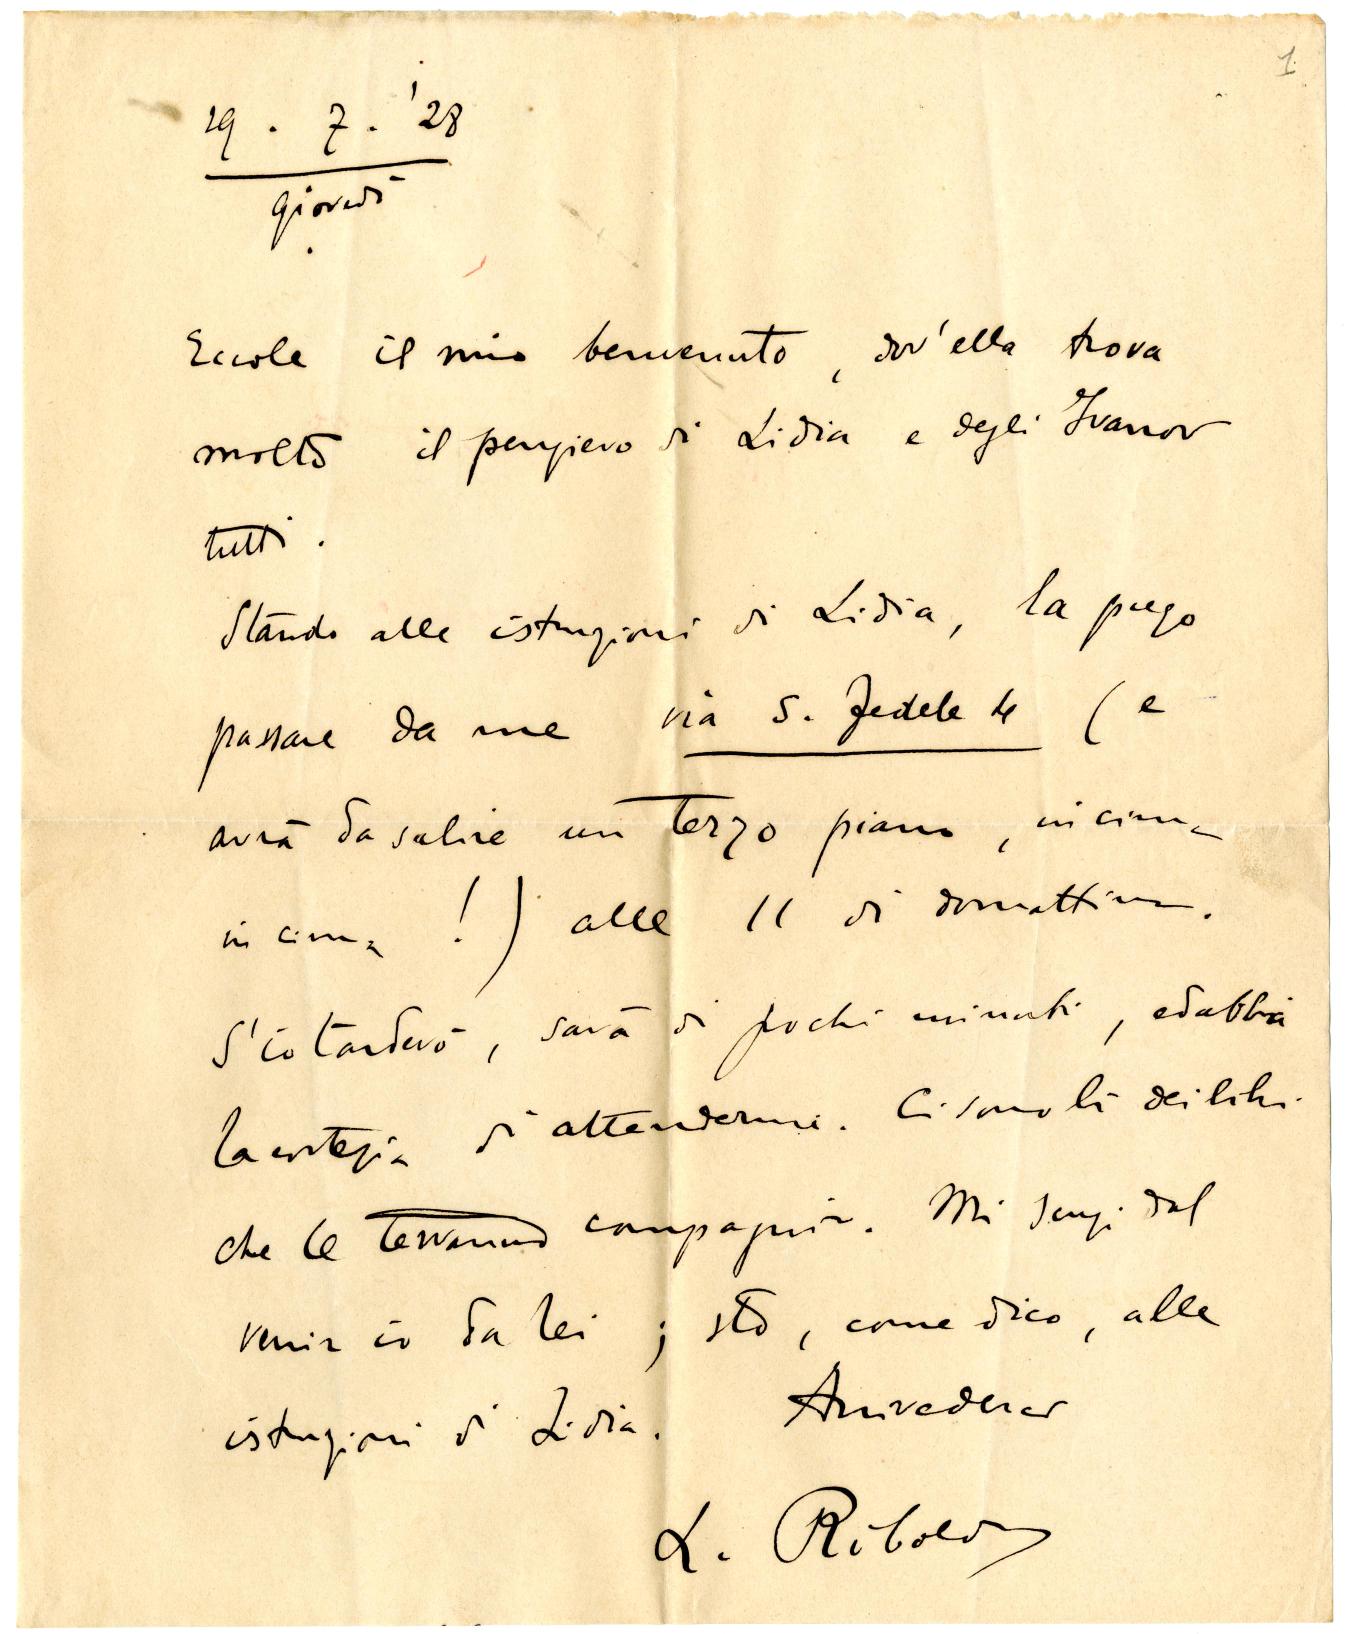 1
19 . 7 . '28
giovedì
Eccole il mio benvenuto, dov'ella trova
molto il pensiero di Lidia e degli Ivanov
tutti.
Stando alle istruzioni di Lidia, la prego
passare da me via S. Fedele 4 (e
avrà da salire un terzo piano, in cima
in cima !) alle 11 di domattina.
S'io tarderò, sarà di pochi minuti, ed abbia
la cortesia di attendermi. Ci sono lì dei libri
che le terranno compagnia. Mi scusi dal
venir io da lei ; sto, come dico, alle
istruzioni di Lidia. Arrivederci
L. Riboldi